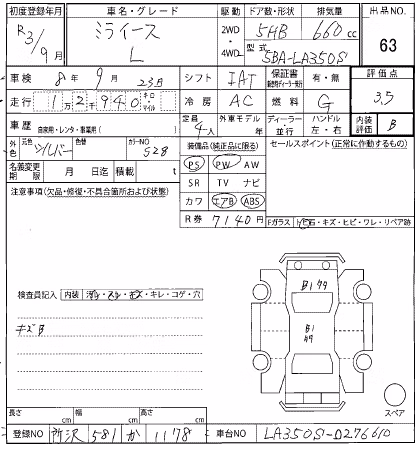 初度登録年月 車名・グレード 駆動 ドア数・形状 排気量 出品NO.
R3/9月 ミライース L 2WD・4WD 5HB 660cc 63
型式 5BA-LA350S
車検 8年 9月 23日 シフト IAT 保証書 有・無 評価点
走行 1万2千940 キロ マイル 冷房 AC 燃料 G 3.5
車歴 自家用・レンタ・事業用( ) 定員 4人 外車モデル 年 ディーラー・並行 ハンドル 左・右 内装評価 B
外色 元色 シルバー 色替 カラーNO S28 装備品(純正品に限る) セールスポイント(正常に作動するもの)
名義変更期限 月 日迄 積載 t PS PW AW
注意事項(欠品・修復・不具合箇所および状態) SR TV ナビ
カワ エアB ABS
R券 7140円 Fガラス 石・キズ・ヒビ・ワレ・リペア跡
検査員記入 内装 キレ・コゲ・穴
キズB
B1
B1
スペア
長さ cm 幅 cm 高さ cm
登録NO 所沢 581 か 1178 車台NO LA350S-0276610